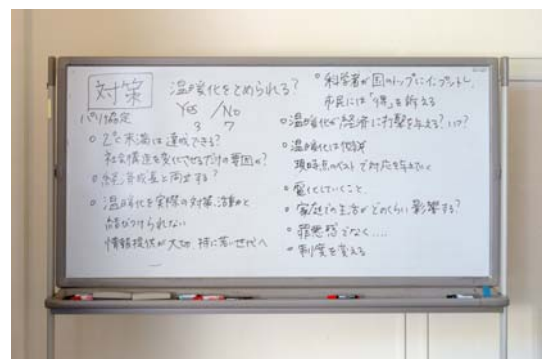 対策
温暖化をとめられる?
Yes / No
3 7
パリ協定
○ 2℃未満は達成できる?
社会構造を変化させるだけの要因か?
○ 経済成長と両立する?
○ 温暖化を実際の対策、活動と
結びつけられない
情報提供が大切、特に若い世代へ
○ 科学者が国のトップにインプットし、
市民には「得」を訴える
○ 温暖化が経済に打撃を与える?いつ?
○ 温暖化は仮説
現時点のベストで対応を考えていく
○ 電化していくこと
○ 家庭での生活がどのくらい影響する?
○ 罪悪感でなく....
○ 制度を変える